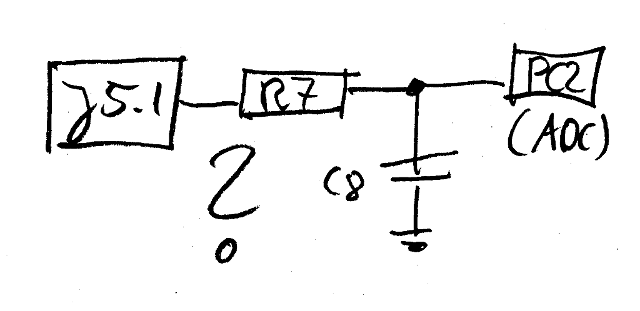 J5.1
R7
PC2
(ADC)
C8
?